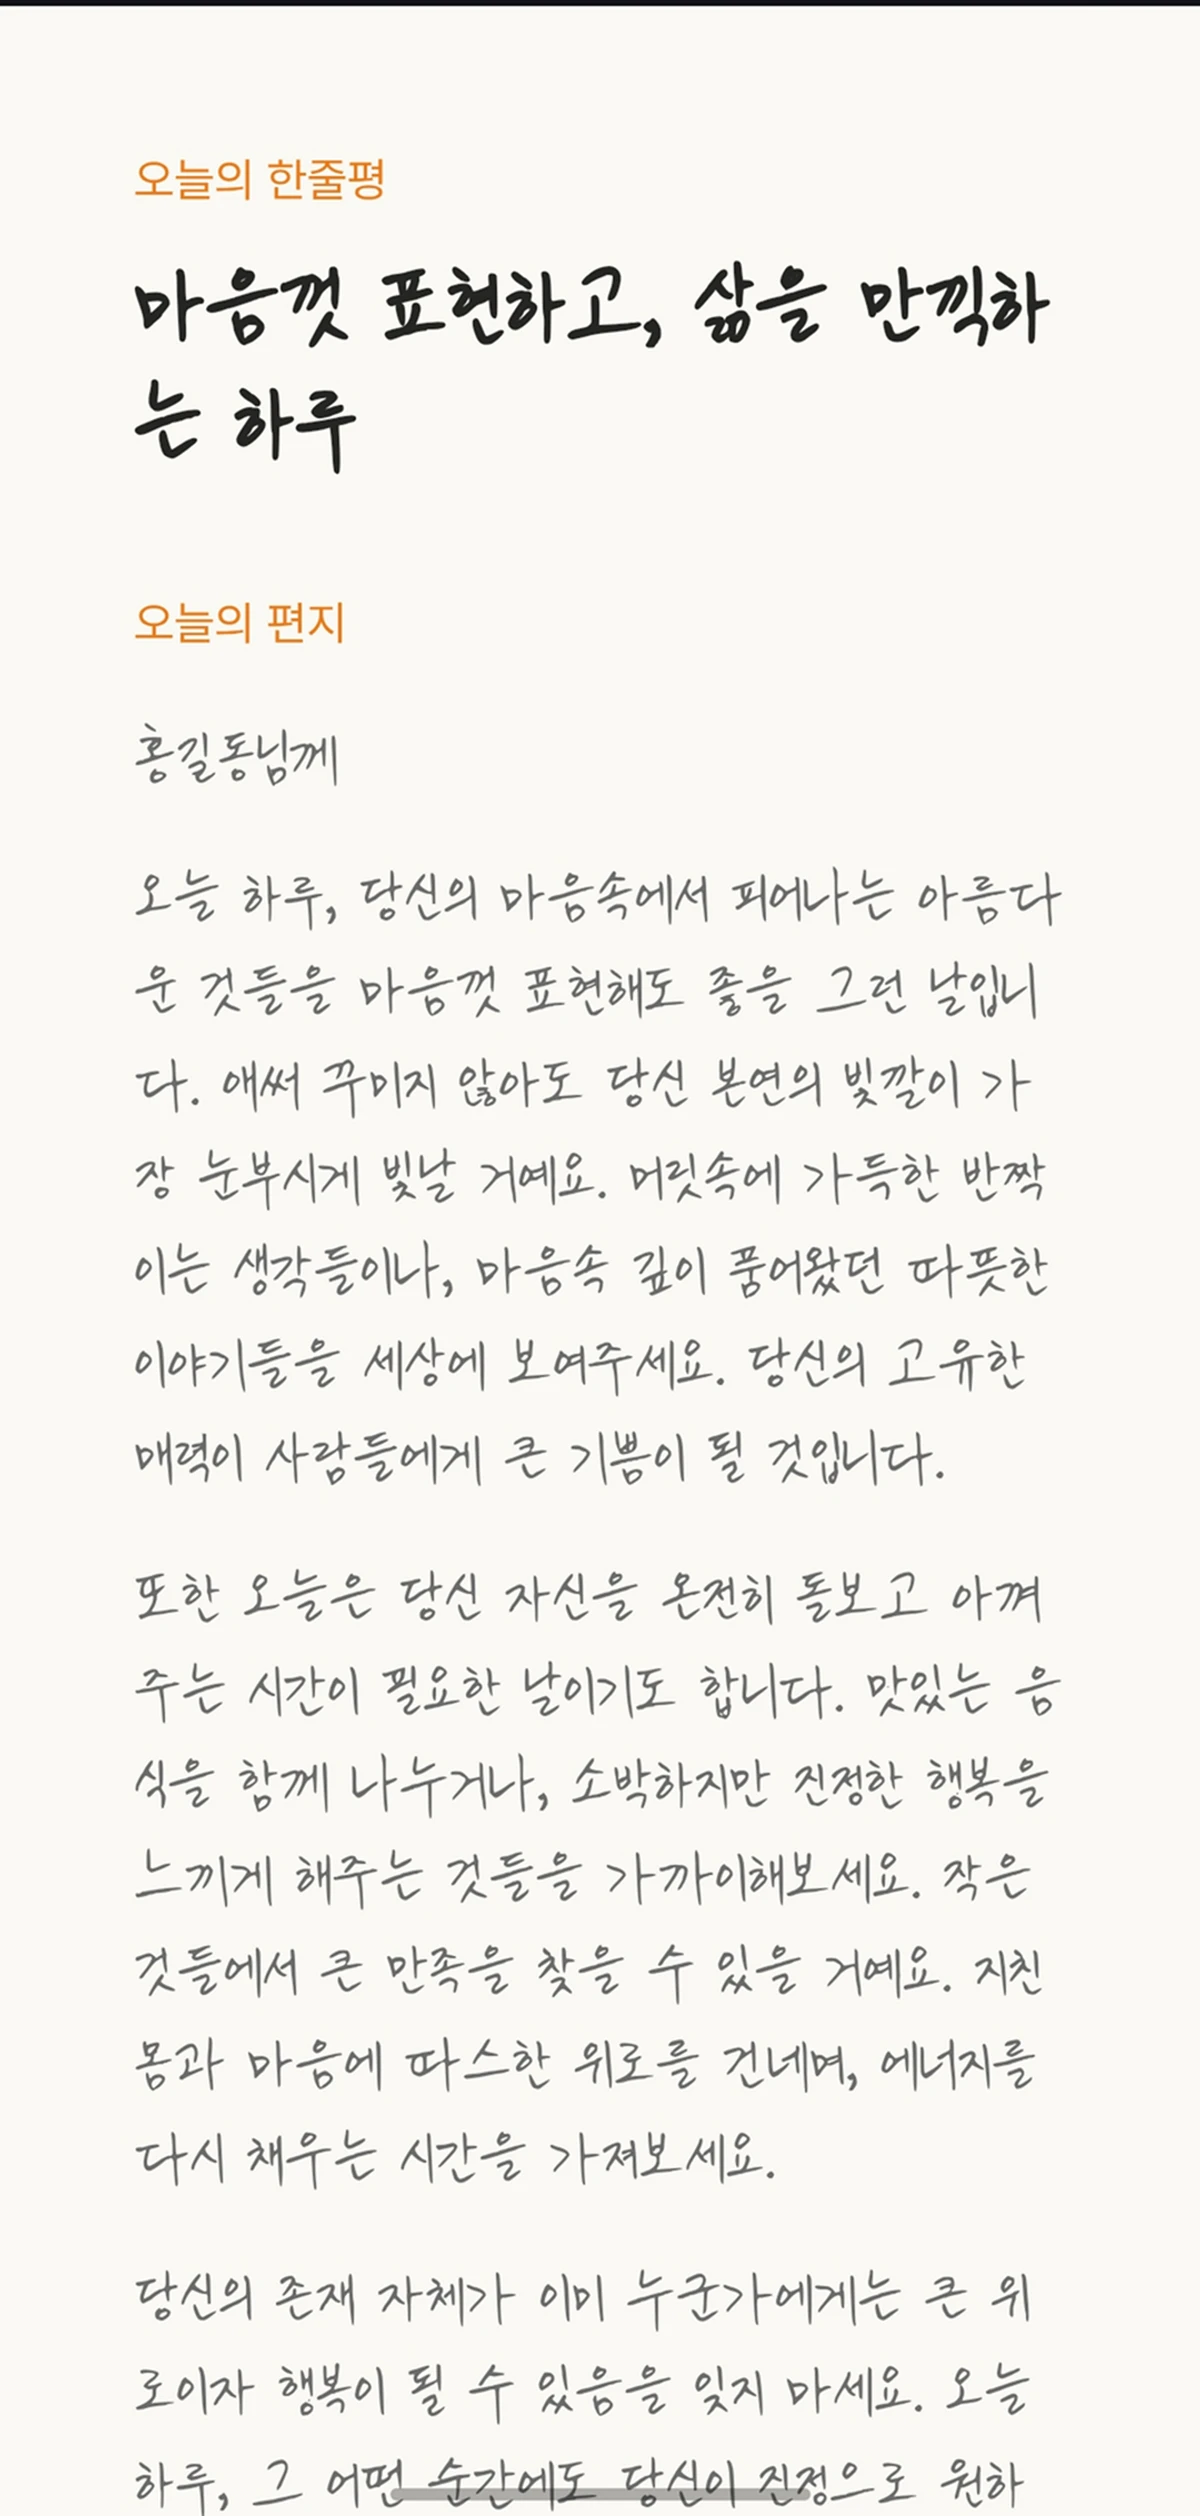 오늘의 한줄평
마음껏 표현하고, 삶을 만끽하
는 하루
오늘의 편지
홍길동님께
오늘 하루, 당신의 마음속에서 피어나는 아름다
운 것들을 마음껏 표현해도 좋을 그런 날입니
다. 애써 꾸미지 않아도 당신 본연의 빛깔이 가
장 눈부시게 빛날 거예요. 머릿속에 가득한 반짝
이는 생각들이나, 마음속 깊이 품어왔던 따뜻한
이야기들을 세상에 보여주세요. 당신의 고유한
매력이 사람들에게 큰 기쁨이 될 것입니다.
또한 오늘은 당신 자신을 온전히 돌보고 아껴
주는 시간이 필요한 날이기도 합니다. 맛있는 음
식을 함께 나누거나, 소박하지만 진정한 행복을
느끼게 해주는 것들을 가까이해보세요. 작은
것들에서 큰 만족을 찾을 수 있을 거예요. 지친
몸과 마음에 따스한 위로를 건네며, 에너지를
다시 채우는 시간을 가져보세요.
당신의 존재 자체가 이미 누군가에게는 큰 위
로이자 행복이 될 수 있음을 잊지 마세요. 오늘
하루, 그 어떤 순간에도 당신이 진정으로 원하